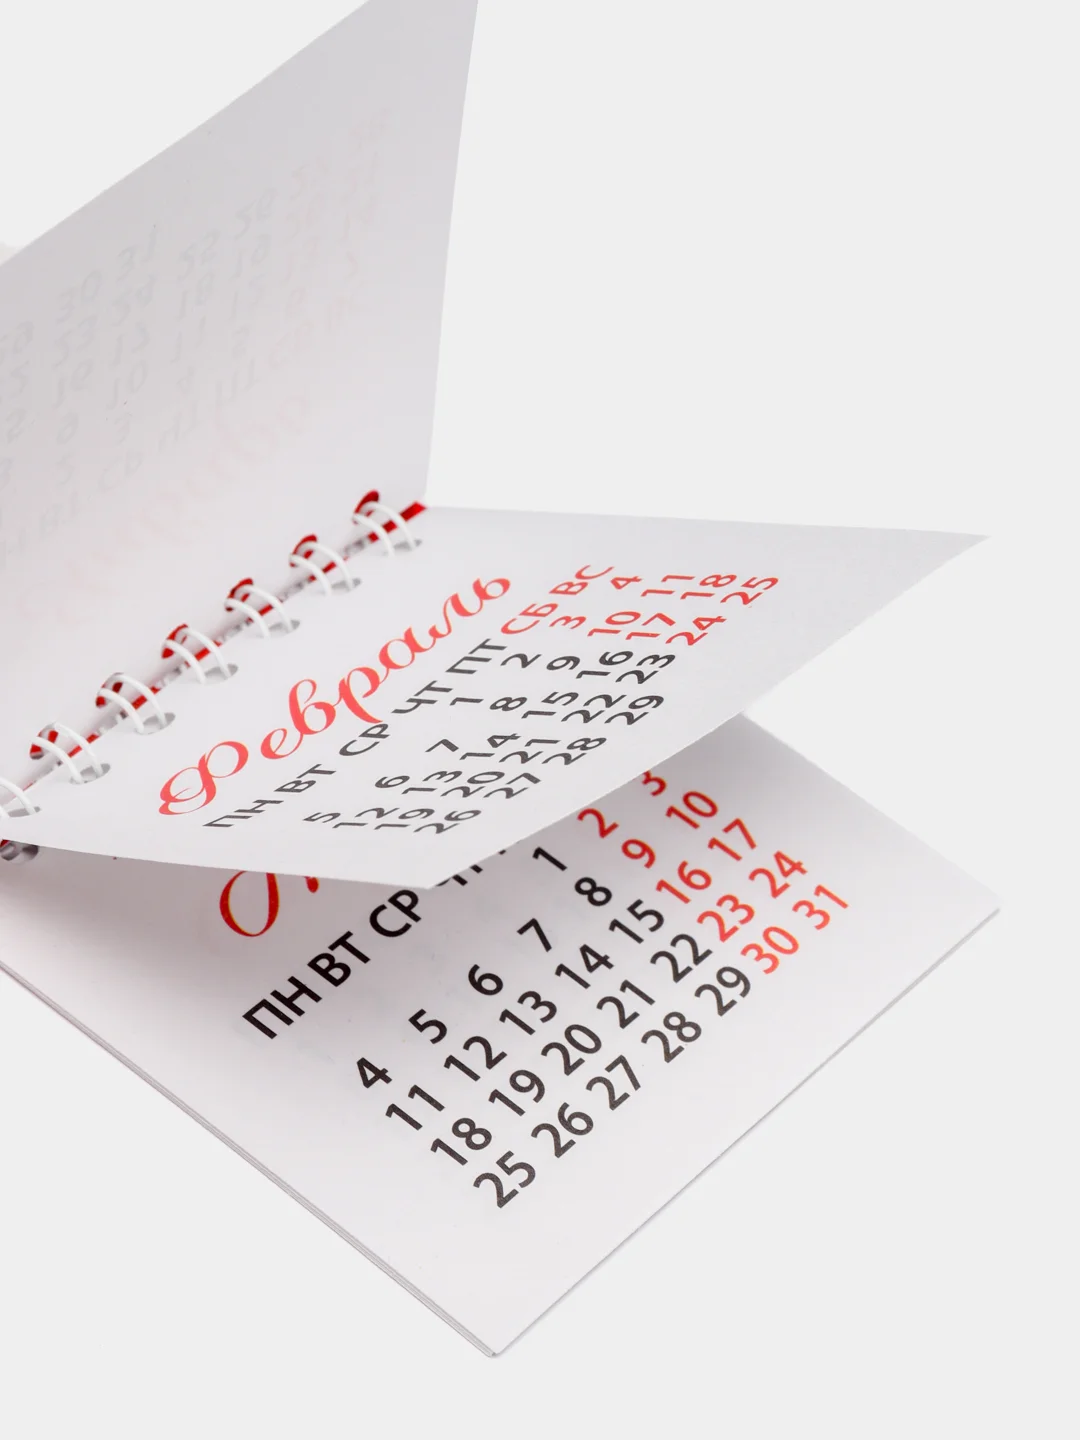 Февраль
ПН ВТ СР ЧТ ПТ СБ ВС
1 2 3 4
5 6 7 8 9 10 11
12 13 14 15 16 17 18
19 20 21 22 23 24 25
26 27 28 29
ПН ВТ СР
1 2 3
4 5 6 7 8 9 10
11 12 13 14 15 16 17
18 19 20 21 22 23 24
25 26 27 28 29 30 31